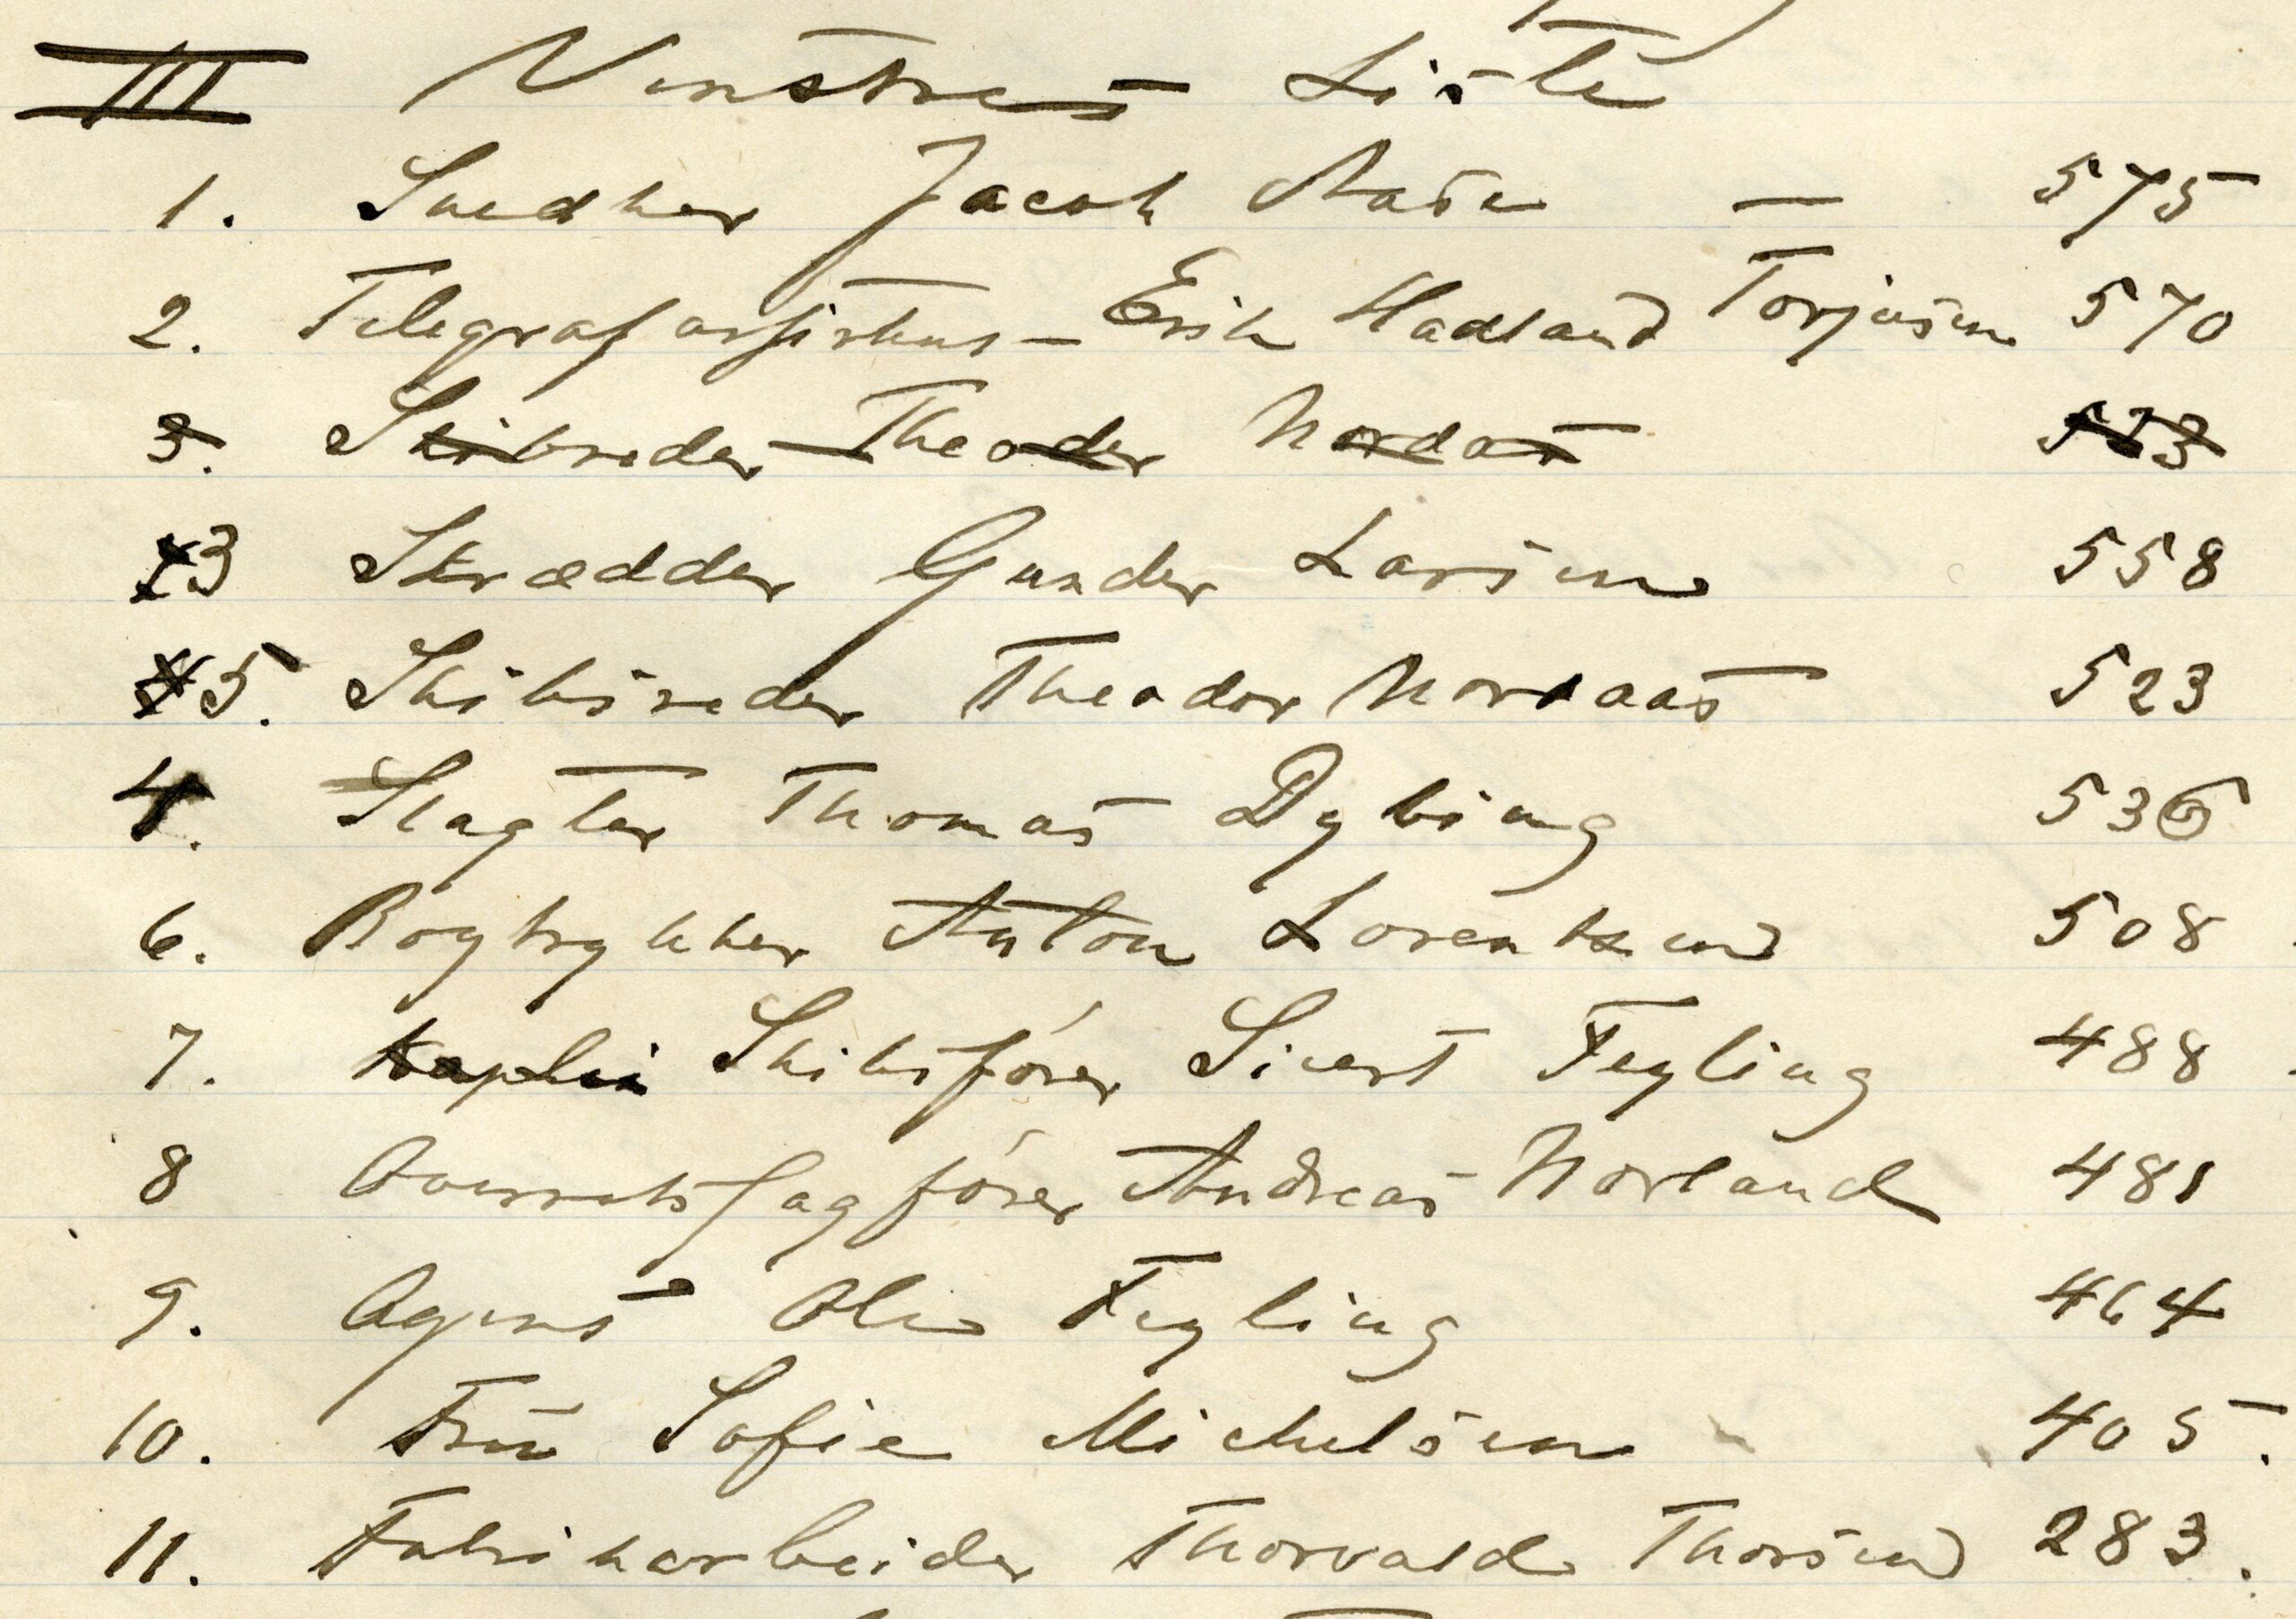 III Venstres Liste
1. Snedker Jacob Aase — 575
2. Telegrafassistent - Erik Hadland Torjusen 570
3. Skibsreder Theodor Nordås 523
3 Skrædder Gunder Larsen 558
5. Skibsreder Theodor Nordaas 523
4. Slagter Thomas Dybing 536
6. Bogtrykker Anton Lorentzen 508
7. Skibsfører Sivert Fegling 488
8 Overretssagfører Andreas Norland 481
9. Agent Ole Fegling 464
10. Fru Sofie Michelsen 405.
11. Fabrikarbeider Thorvald Thorsen 283.